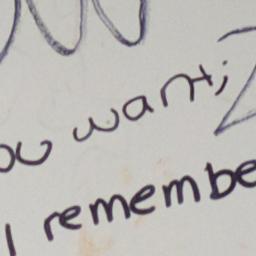 ou want;
I remembe